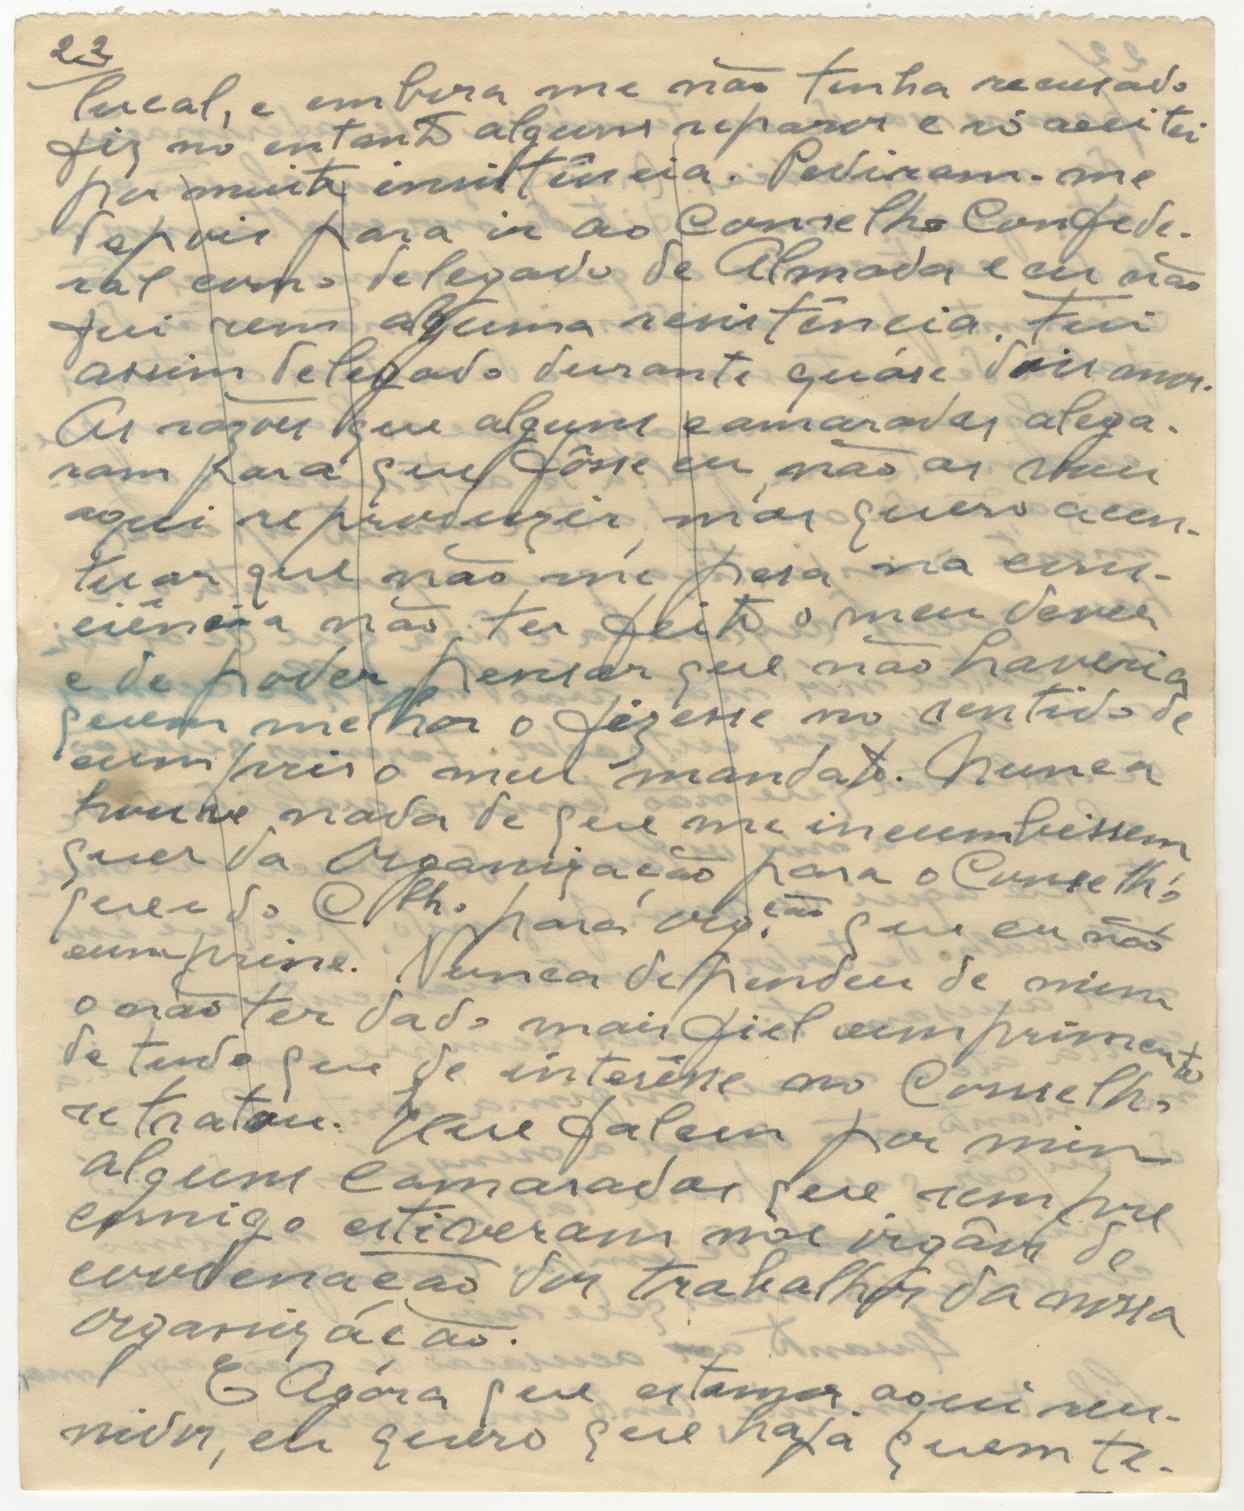 23
local, e embora me não tenha recusado
fiz no entanto alguns reparos e só aceitei
por muita insistência. Pediram-me
depois para ir ao Conselho Confede-
ral como delegado de Almada e eu não
fui sem alguma resistência. Fui
assim delegado durante quáse dois anos.
As razões que alguns camaradas alega-
ram para que fôsse eu, não as vou
aqui reproduzir, más quero acen-
tuar que não me pesa na cons-
ciência não ter feito o meu dever
e de poder pensar que não haveria
quem melhor o fizesse no sentido de
cumprir o meu mandato. Nunca
houve nada de que me incumbissem
quer da Organização para o Conselho
quer do C.lho para órg.ção que eu não
cumprisse. Nunca dependeu de mim
o não ter dado mais fiel cumprimento
de tudo que de interêsse no Conselho
se tratou. Que falem por mim
alguns camaradas que sempre
comigo estiveram nos órgãos de
coordenação dos trabalhos da nossa
organização.
E Agóra que estamos aqui reu-
nidos, eu quero que haja quem te-